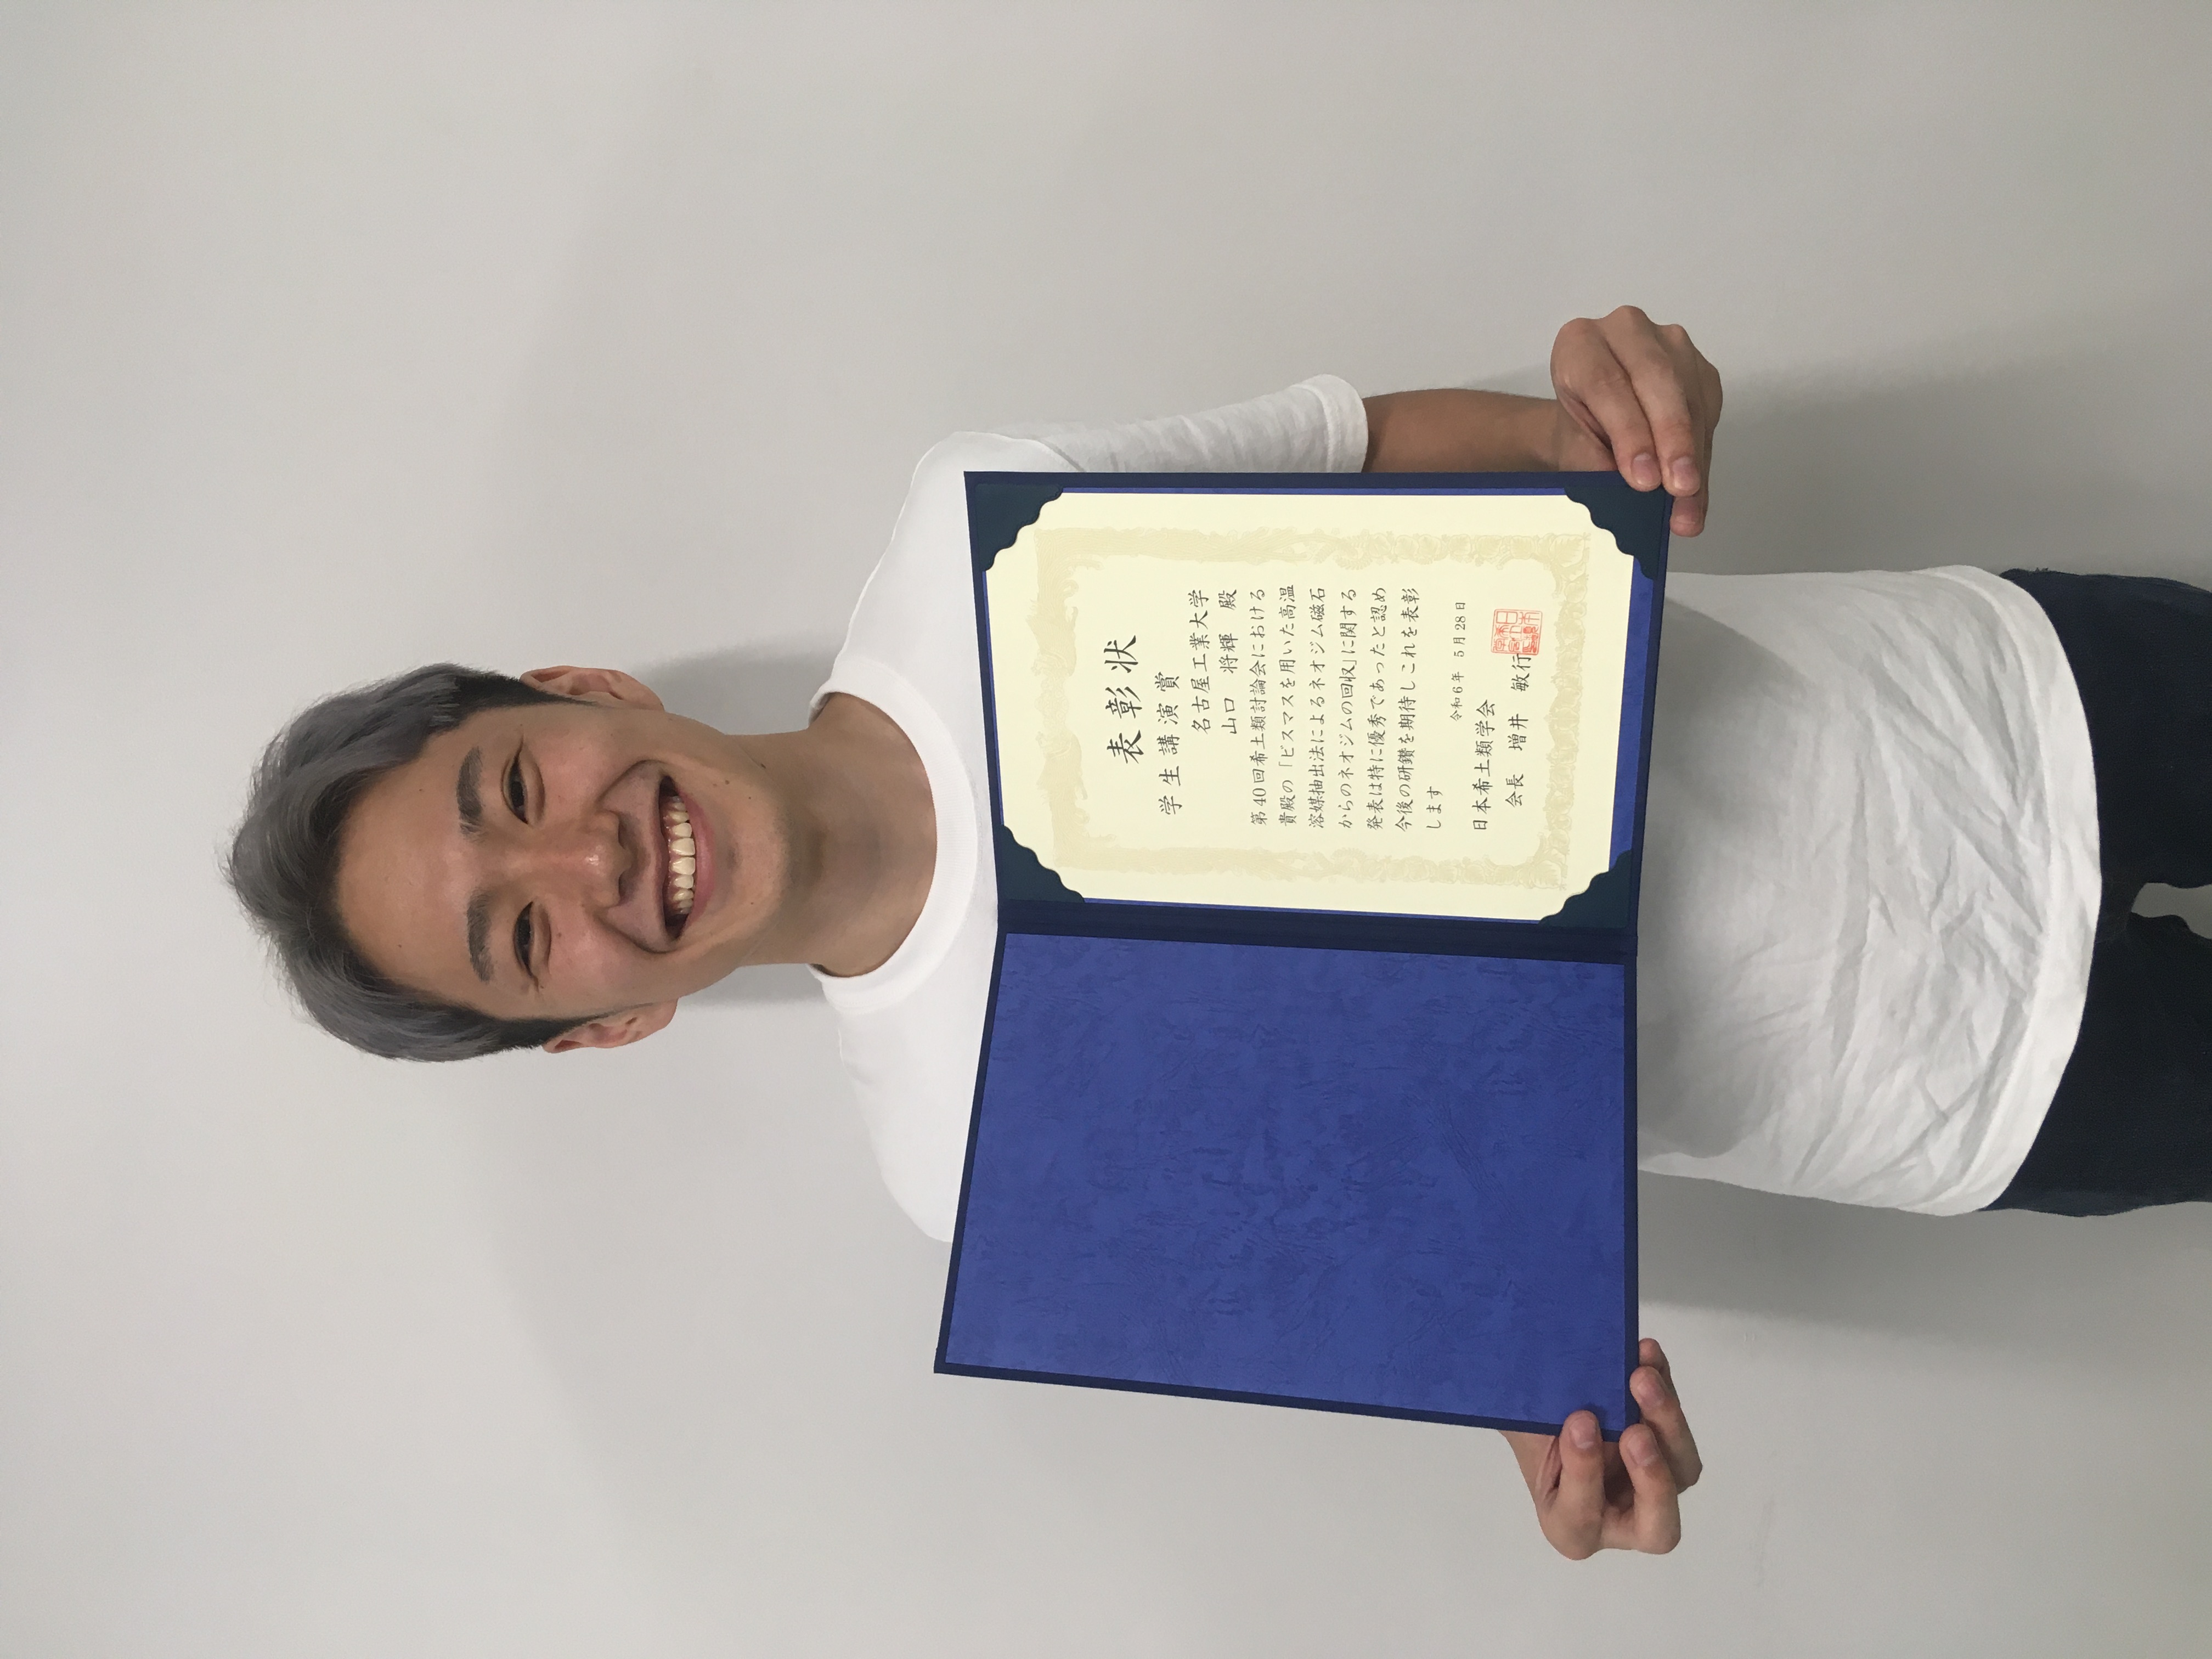 表彰状
学生講演賞
名古屋工業大学
山口 将輝 殿
第40回希土類討論会における
貴殿の「ビスマスを用いた高温
溶媒抽出法によるネオジム磁石
からのネオジムの回収」に関する
発表は特に優秀であったと認め
今後の研鑽を期待しこれを表彰
します
令和6年 5月28日
日本希土類学会
会長 増井 敏行